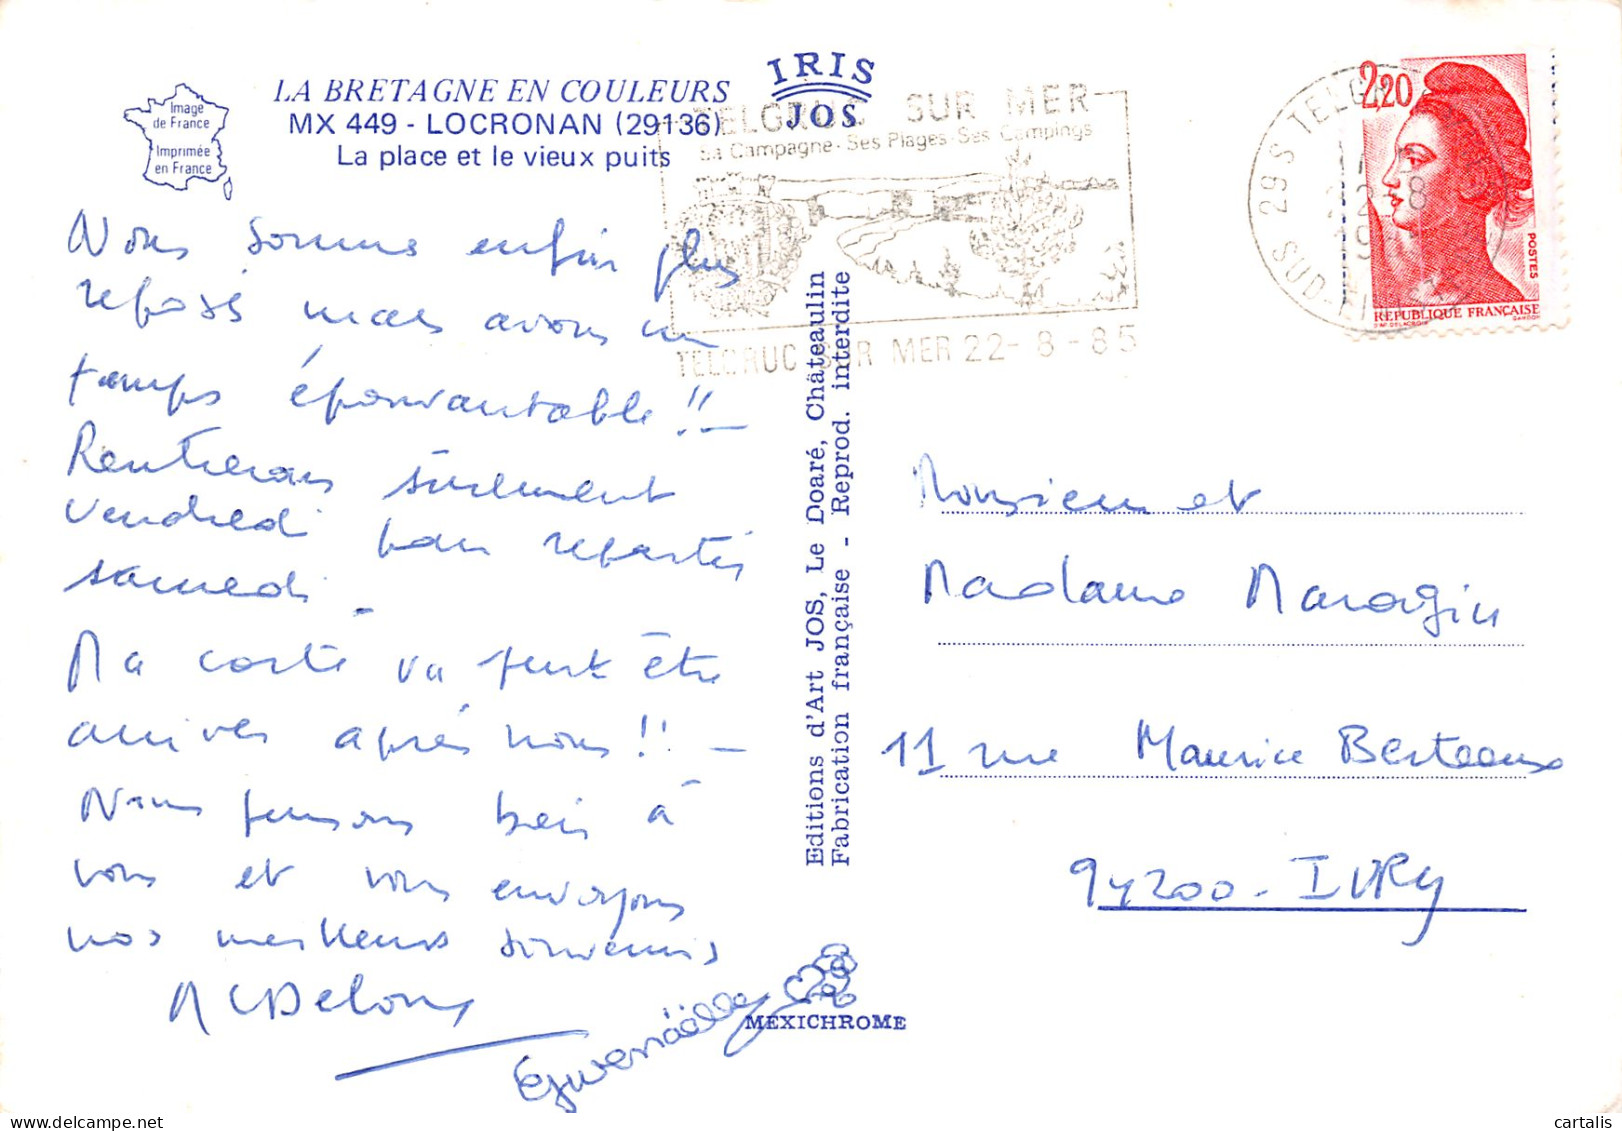 Image
de France
Imprimée
en France
LA BRETAGNE EN COULEURS
MX 449 - LOCRONAN (29136)
La place et le vieux puits
IRIS
JOS
TELGRUC SUR MER
Sa Campagne - Ses Plages - Ses Campings
TELGRUC SUR MER 22-8-85
2,20
POSTES
REPUBLIQUE FRANÇAISE
Nous sommes enfin plus
reposés mais avons un
temps épouvantable !! -
Rentrerons sûrement
vendredi pour repartir
samedi -
Ma carte va peut être
arriver après nous !! -
Nous pensons bien à
vous et vous envoyons
nos meilleurs souvenirs
Gwenaëlle
Editions d'Art JOS, Le Doaré, Châteaulin
Fabrication française - Reprod. interdite
MEXICHROME
Monsieur et
Madame Maragin
11 rue Maurice Berteaux
94200 - IVRY
cartalis